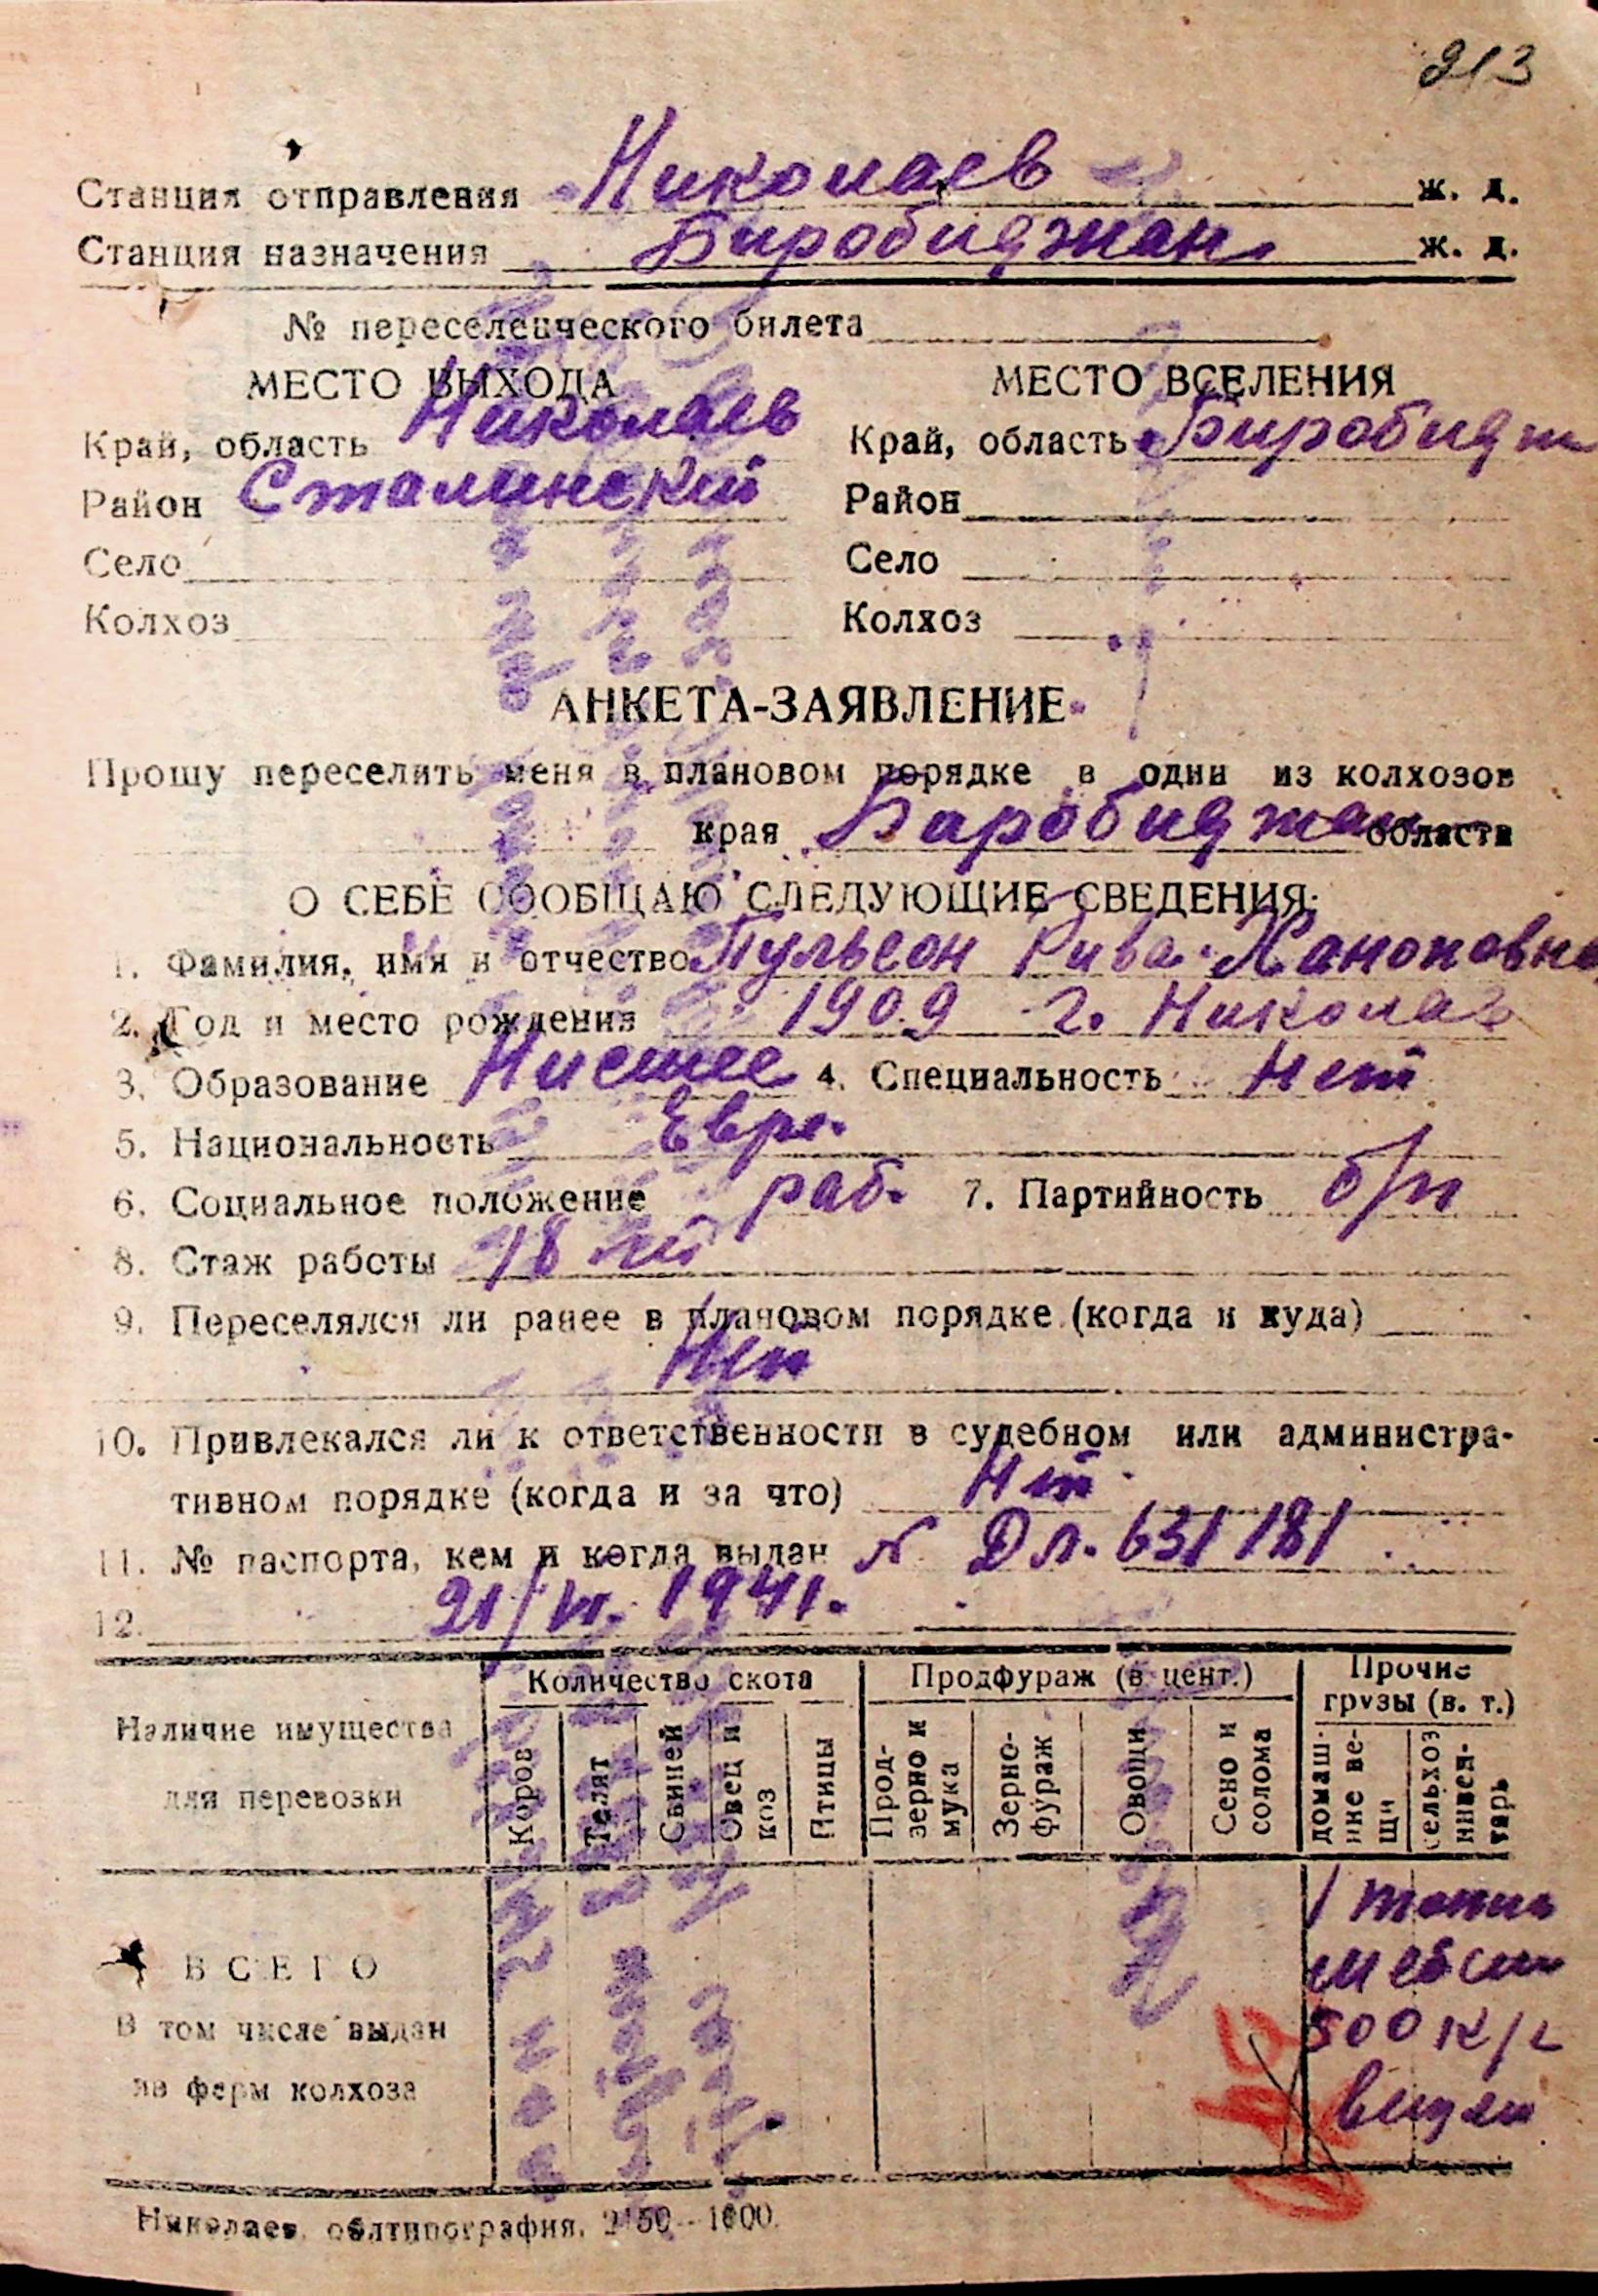 213
Станция отправления Николаев ж. д.
Станция назначения Биробиджан ж. д.
№ переселенческого билета
МЕСТО ВЫХОДА
Край, область Николаев
Район Сталинский
Село
Колхоз
МЕСТО ВСЕЛЕНИЯ
Край, область Биробидж
Район
Село
Колхоз
АНКЕТА-ЗАЯВЛЕНИЕ
Прошу переселить меня в плановом порядке в один из колхозов
края Биробиджан области
О СЕБЕ СООБЩАЮ СЛЕДУЮЩИЕ СВЕДЕНИЯ:
1. Фамилия, имя и отчество Пульсон Рива Ханоновна
2. Год и место рождения 1909 г. Николаев
3. Образование Нисшее 4. Специальность Нет
5. Национальность Евре.
6. Социальное положение раб. 7. Партийность б/п
8. Стаж работы 18 лет
9. Переселялся ли ранее в плановом порядке (когда и куда)
Нет
10. Привлекался ли к ответственности в судебном или администра-
тивном порядке (когда и за что) Нет
11. № паспорта, кем и когда выдан № 631181
12. 21/VI. 1941.
Наличие имущества
для перевозки
Количество скота
Коров
Телят
Свиней
Овец и
коз
Птицы
Продфураж (в цент.)
Прод-
зерно и
мука
Зерно-
фураж
Овощи
Сено и
солома
Прочие
грузы (в. т.)
домаш-
ние ве-
щи
сельхоз
инвен-
тарь
ВСЕГО
В том числе выдан
из ферм колхоза
1 тонна
мебели
500 к/г
вещей
Николаев, облтипография, 2150—1000.